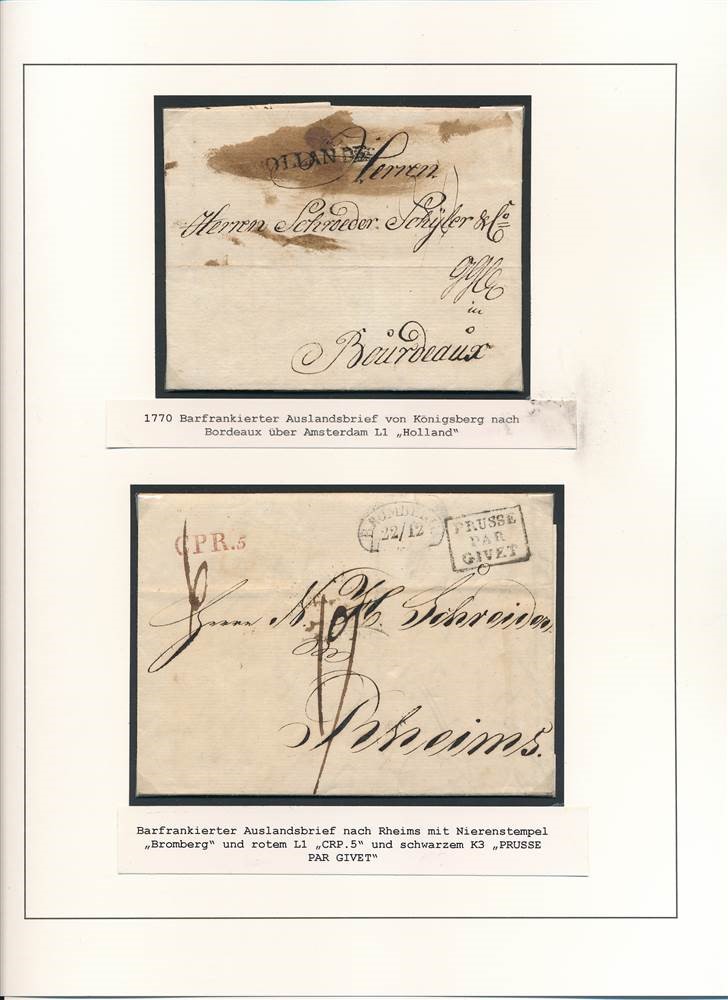 OLLANDE
Herren
Herren Schroeder. Schÿler & Co
in
Bourdeaux
1770 Barfrankierter Auslandsbrief von Königsberg nach
Bordeaux über Amsterdam L1 „Holland“
CPR.5
BROMBERG
22/12
PRUSSE
PAR
GIVET
Herrn N. H. Schreider.
Rheims.
Barfrankierter Auslandsbrief nach Rheims mit Nierenstempel
„Bromberg“ und rotem L1 „CRP.5“ und schwarzem K3 „PRUSSE
PAR GIVET“